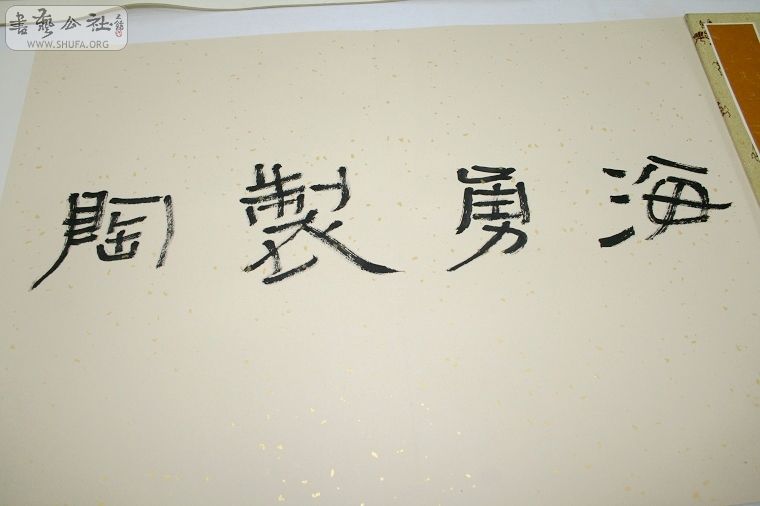 書藝公社
WWW.SHUFA.ORG
海勇製陶